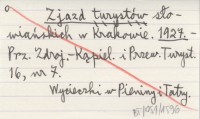 Zjazd turystów sło-
wiańskich w Krakowie. 1927.-
Prz. Zdroj.-Kąpiel. i Przew. Turyst.
16, nr 7.
Wycieczki w Pieniny i Tatry.